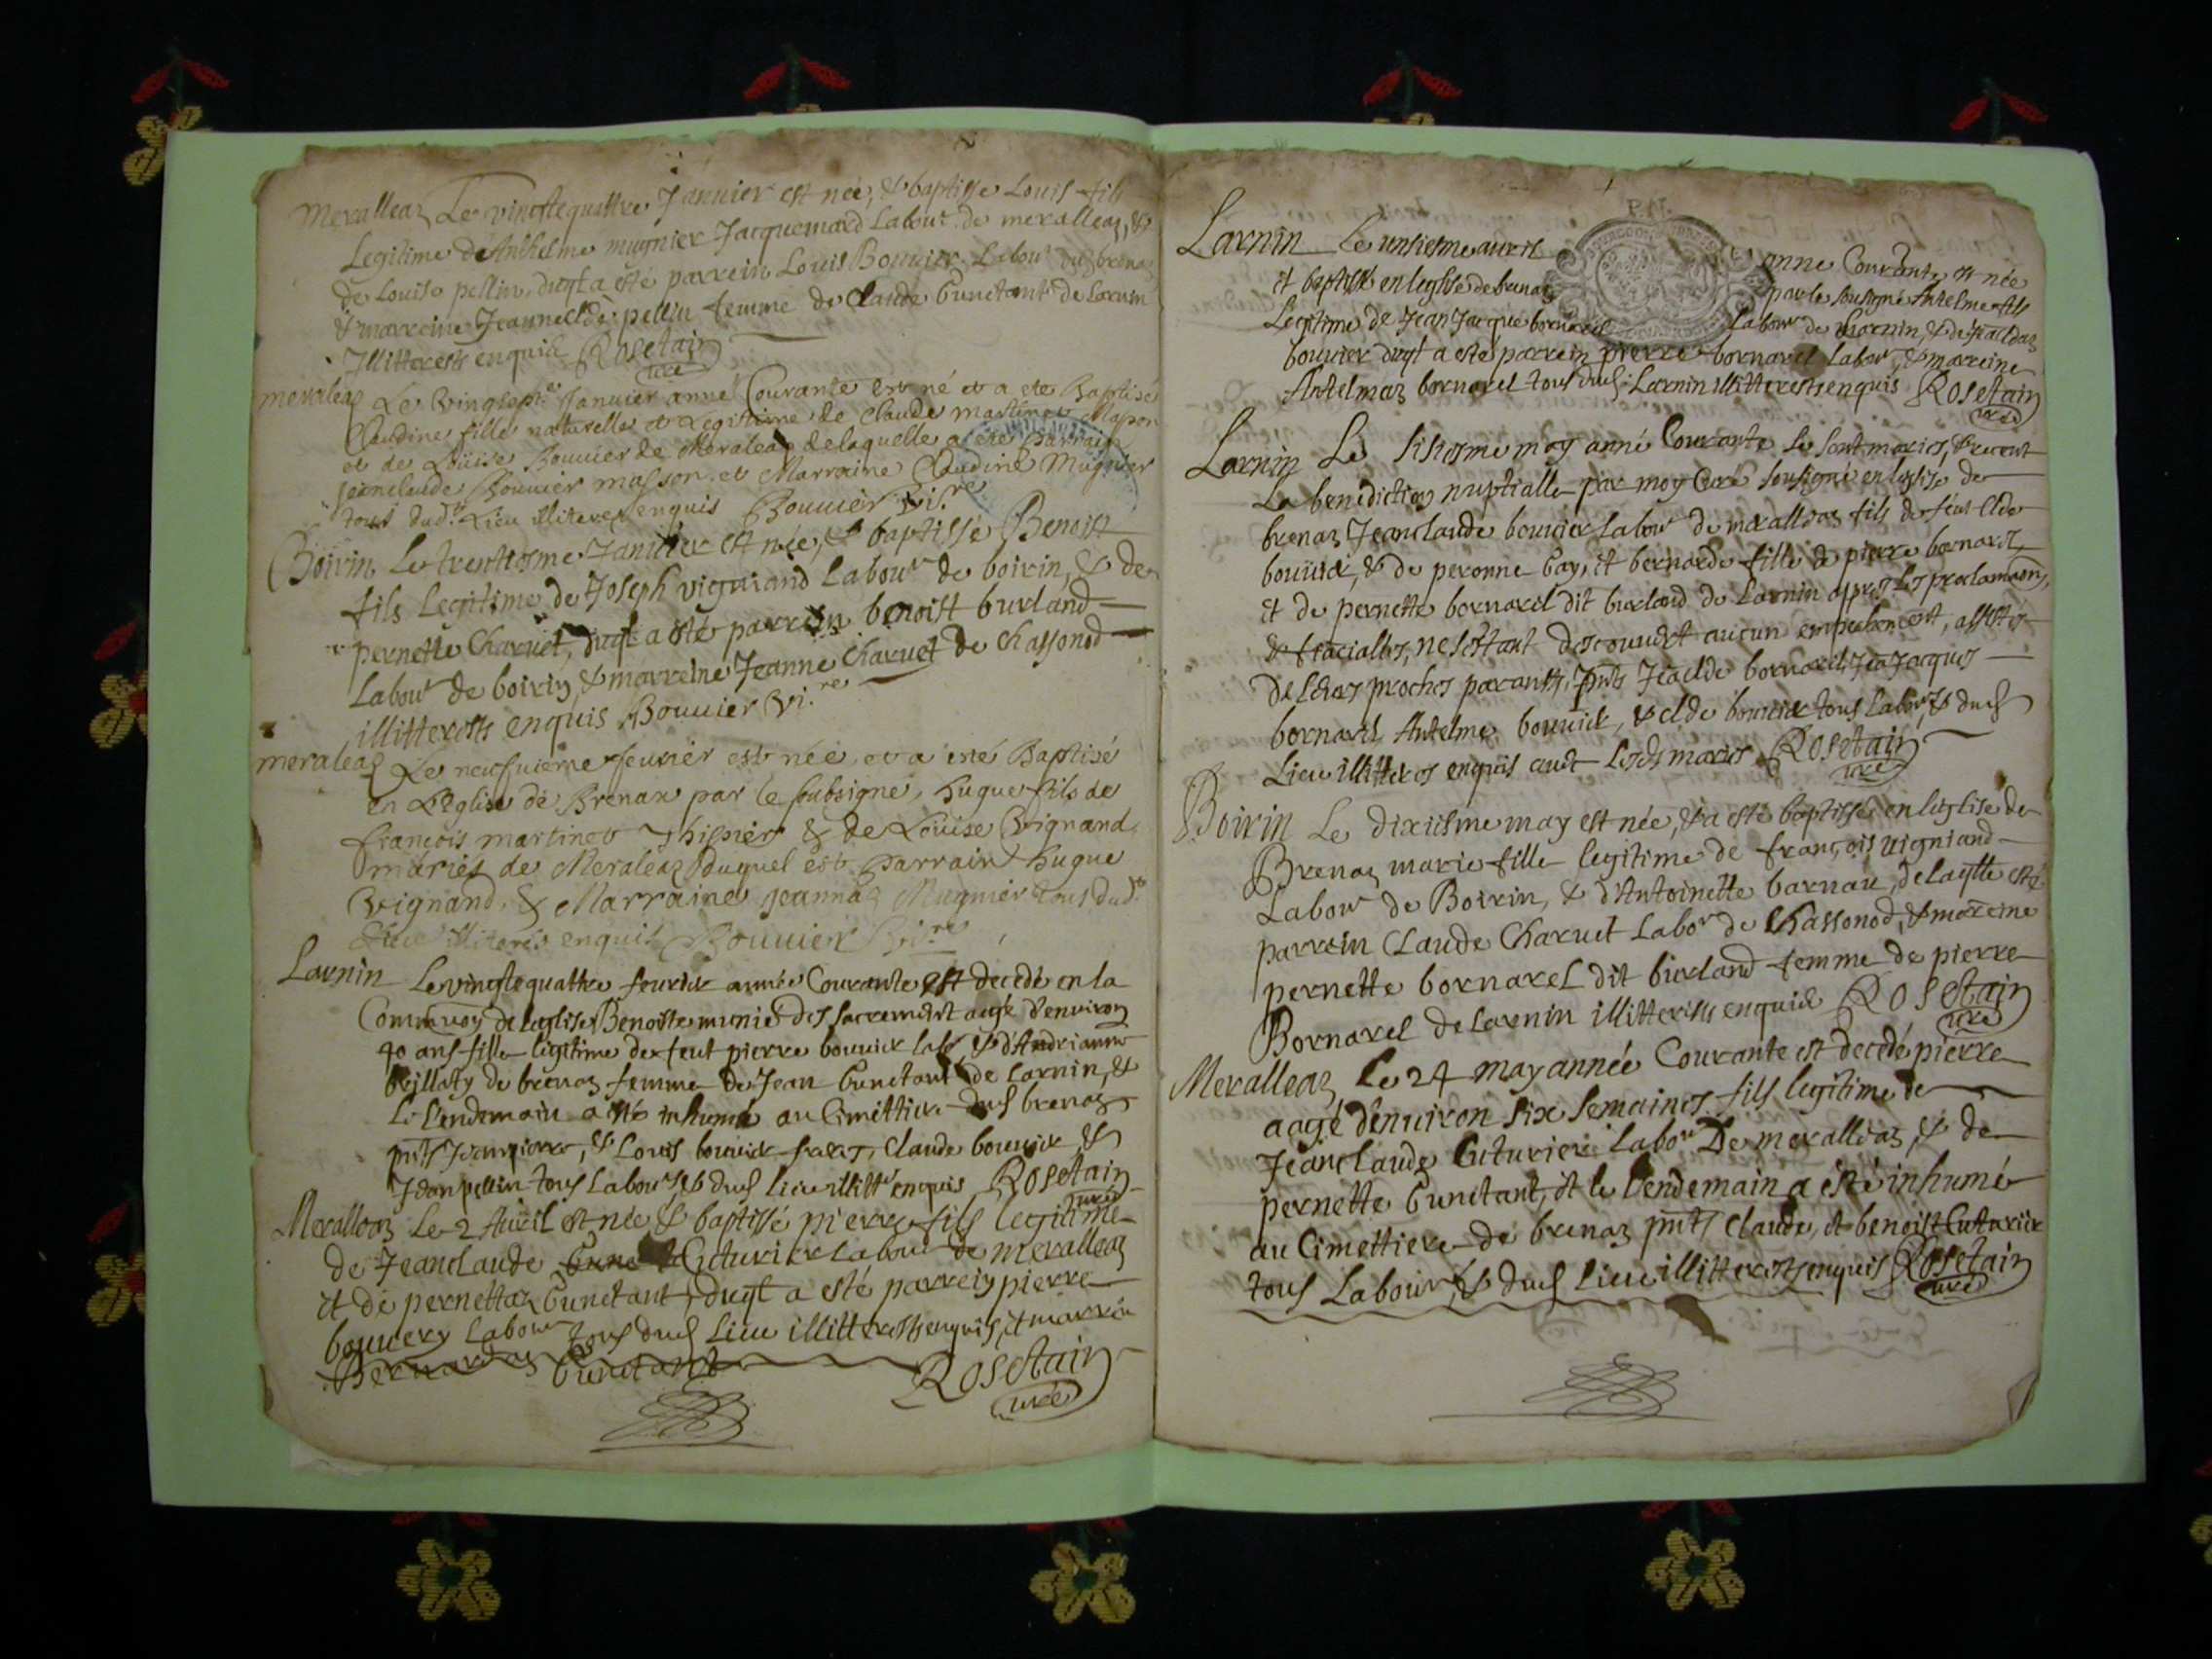 Meralleaz Le vingtequattre Janvier est née, & baptisse Louis fils
Legitime de Anthelme mugnier Jacquemard Labour de meralleaz, &
de Louise pellin, duqt a esté parrein Louis Bouvier Labour dud brenaz
& marreine Jeanneclde pellin femme de Claude Cunctant de Larnin
Illitterests enquis Rosetain
curé
meraleaz Le Vingtsept.e Janvier anné Courante est né et a ete Baptisé
Claudine fille naturelle et Legitime de Claude martinet Masson
et de Loüise Bouvier de Meraleaz de laquelle a eté Parrain
jeanclaude Bouvier masson et Marraine Claudine Mugnier
tous dud.t Lieu illiteres enquis Bouvier Vi.re
Boirin Le trentiesme Janvier est née, & baptissé Benoist
fils Legitime de Joseph vigniand Labour de boirin, & de
pernette Charvet, duqt a esté parrein benoist burland
Labour de boirin & marreine Jeanne Charvet de Chassonod
illitterests enquis Bouvier Vi.re
meraleaz Le neufvieme fevrier est née et a eté Baptisé
en L'Eglise de Brenax par le subsigné, hugue fils de
françois martinet & de Loüise Vignand
mariés de Meraleaz duquel est Parrain hugue
Vignand, & Marraine jeannaz Mugnier tous dud.t
Lieu illiterés enquis Bouvier Vi.re
Larnin Le vingtequattre fevrier année Courante est decedé en la
Communion de leglise Benoiste munie des sacrement aagé d'environ
40 ans fille legitime de feut pierre bouvier labr, & d'Andrianne
brillaty de brenaz femme de Jean Cunctant de Larnin, &
Le lendemain a esté inhumé au Cimettier dud brenaz
pnts Jeanpierre, & Louis bouvier freres, Claude bouvier &
Jean pellin tous Labours, & dud lieu illitt enquis Rosetain
curé
Meralleaz Le 2 Avril est née & baptissé pierre fils legitime
de Jeanclaude Cuturier labour de meralleaz
et de pernettaz Cunctant, duqt a esté parrein pierre
bouvery Labour tous dud Lieu illitterests enquis, et marrein
Bernardaz Cunctant
Rosetain
curé
P.N.
Larnin Le unsiesme avril anne Courante, est née
et baptissé en leglise de brenaz par le sousigné Antelme fils
Legitime de Jean Jacque bornarel Labour de Larnin, & de Jeacldaz
bouvier duqt a esté parrein pierre bornarel Labour, & marreine
Antelmaz bornarel tous dud Larnin illitterests enquis Rosetain
curé
Larnin Le sisiesme may anné Courante se sont mariés, & receut
La benediction nuptialle par moy Curé sousigné en leglise de
brenaz Jeanclaude bouvier labour de meralleaz fils de feut Clde
bouvier, & de peronne Gay, et bernarde fille de pierre bornarel
et de pernette bornarel dit burland de Larnin apres les proclamaons,
& fiancialles, ne s'estant descouvert aucun empechement, assistés
de leurs proches parants, pnts Jeaclde bornarel, Jea Jacques
bornarel Antelme bouvier, & clde bouvier tous labours, & dud
Lieu illitterés enquis avec Lesds mariés Rosetain
curé
Boirin Le dixiesme may est née, & a esté baptissé en leglise de
Brenaz marie fille legitime de françois vigniand
Labour de Boirin, & d'Antoinette barnau, de laqlle esté
parrein Claude Charvet Labor de Chassonod, & marreine
pernette bornarel dit burland femme de pierre
Bornarel de Larnin illitterests enquis Rosetain
curé
Meralleaz Le 24 may année Courante est decedé pierre
aagé d'environ six semaines fils legitime de
Jeanclaude Cuturier labour De meralleaz, & de
pernette Cunctant, et le lendemain a esté inhumé
au Cimettiere de brenaz pnts Claude, et benoist Cuturier
tous Labours, & dud lieu illitterests enquis Rosetain
curé